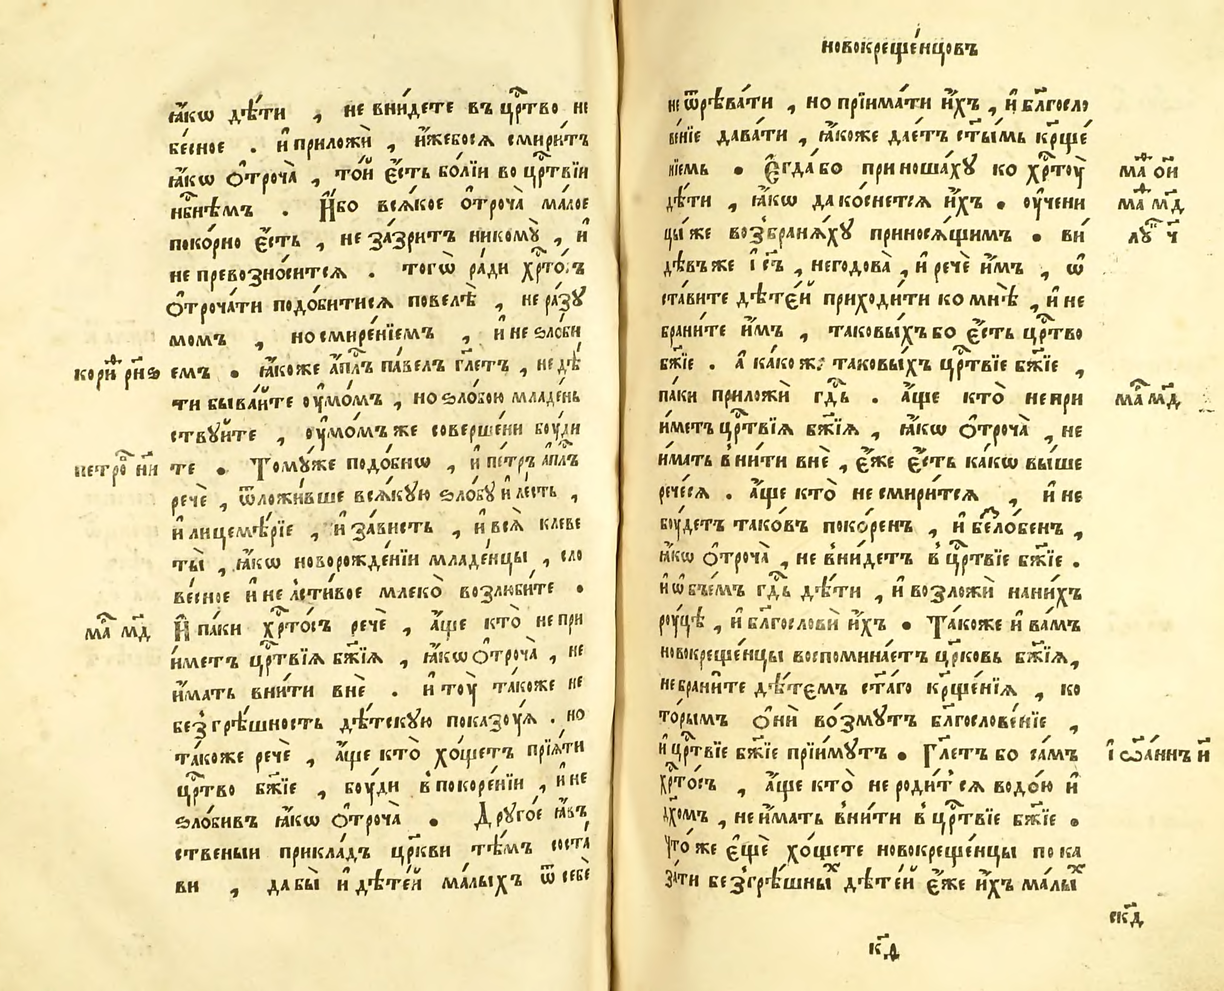 ꙗ҆́кѡ дѣ́ти , не вни́дете въ црⷭ҇тво не
бе́сное . и҆ приложѝ , и҆́жебосѧ смири́тъ
ꙗ҆́кѡ ѻ҆троча̀ , то́и є҆́сть бо́лїи во црⷭ҇твїи
нб҃нѣмъ . И҆́бо всѧ́кое ѻ҆троча̀ ма́лое
поко́рно є҆́сть , не за́зритъ никомꙋ̀ , и҆
не превозно́ситсѧ . тогѡ̀ ра́ди хрⷭ҇то́съ
ѻ҆троча́ти подо́битисѧ повелѣ̀ , не ра́зꙋ
момъ , но смире́нїемъ , и҆ не ѕло́би
кори́нⷴ҇ рн҃ѕ
емъ . ꙗ҆́коже а҆пⷭ҇лъ па́велъ гл҃етъ , не дѣ́
ти быва́йте оу҆мо́мъ , но ѕло́бою младе́нь
ствꙋ́йте , оу҆мо́мъ же соверше́ни бꙋ́ди
петро̀ н҃и
те . Томꙋ́же подо́бнѡ , и҆ пе́тръ а҆пⷭ҇лъ
речѐ , ѿложи́вше всѧ́кꙋю ѕло́бꙋ и҆ ле́сть ,
и҆ лицемѣ́рїе , и҆ за́висть , и҆ всѧ̀ клеве
ты̀ , ꙗ҆́кѡ новорожде́нїи младе́нцы , сло
ве́сное и҆ не ле́стивое млеко̀ возлюби́те .
маⷴ҇ м҃д
И҆ паки хрⷭ҇то́съ речѐ , а҆́ще кто̀ не при
и҆́метъ црⷭ҇твїѧ бж҃їѧ , ꙗ҆́кѡ ѻ҆троча̀ , не
и҆́мать вни́ти внѐ . и҆ тꙋ̀ та́коже не
безгрѣ́шность дѣ́тскꙋю показꙋ́ѧ . но
та́коже речѐ , а҆́ще кто̀ хо́щетъ прїѧ́ти
црⷭ҇тво бж҃їе , бꙋ́ди в покоре́нїи , и҆ не
ѕло́бивъ ꙗ҆́кѡ ѻ҆троча̀ . Дрꙋго́е ꙗ҆́въ
ственыи прикла́дъ цр҃кви тѣ́мъ соста́
ви , дабы̀ и҆ дѣ́тей ма́лыхъ ѿ себѐ
новокреще́нцовъ
не ѿрѣва́ти , но прїима́ти и҆́хъ , и҆ блг҃осло
ве́нїе дава́ти , ꙗ҆́коже дае́тъ ст҃ы́мь кр҃ще́
нїемь . Є҆гда́ бо приноша́хꙋ ко хрⷭ҇тꙋ̀
маⷴ҇ о҃и
дѣ́ти , ꙗ҆́кѡ да ко́снетсѧ и҆́хъ . оу҆чени
маⷴ҇ м҃д
цы́ же возбранѧ́хꙋ приносѧ́щимъ . ви́
лꙋⷦ҇ ч҃
дѣвъ же і҆с҃ъ , негодова̀ , и҆ речѐ и҆̀мъ , ѡ҆
ста́вите дѣ́тей приходи́ти ко мнѣ̀ , и҆ не
брани́те и҆̀мъ , таковы́хъ бо є҆́сть црⷭ҇тво
бж҃їе . А҆ како ж таковы́хъ црⷭ҇твїе бж҃їе ,
па́ки приложѝ гдⷭ҇ь . а҆́ще кто̀ не при
маⷴ҇ м҃д
и҆́метъ црⷭ҇твїѧ бж҃їѧ , ꙗ҆́кѡ ѻ҆троча̀ , не
и҆́мать вни́ти внѐ , є҆́же є҆́сть ка́кѡ вы́ше
рече́сѧ . а҆́ще кто̀ не смири́тсѧ , и҆ не
бꙋ́детъ тако́въ поко́ренъ , и҆ беⷥ҇ло́бенъ ,
ꙗ҆́кѡ ѻ҆троча̀ , не вни́детъ в црⷭ҇твїе бж҃їе .
и҆ ѡ҆бъе́мъ гдⷭ҇ь дѣ́ти , и҆ возложѝ на ни́хъ
рꙋ́цѣ , и҆ блг҃ословѝ и҆́хъ . Та́коже и҆ ва́мъ
новокреще́нцы воспомина́етъ цр҃ковь бж҃їѧ ,
не брани́те дѣ́темъ ст҃а́го кр҃ще́нїѧ , ко
то́рымъ ѻ҆нѝ во́змꙋтъ блг҃ослове́нїе ,
и҆ црⷭ҇твїе бж҃їе прїи́мꙋтъ . Гл҃етъ бо са́мъ
і҆ѡ҆а́ннъ и҃
хрⷭ҇то́съ , а҆́ще кто̀ не роди́тсѧ водо́ю и҆
дх҃омъ , не и҆́мать вни́ти в црⷭ҇твїе бж҃їе .
что́ же є҆щѐ хо́щете новокреще́нцы пока
за́ти безгрѣ́шныⷯ дѣ́тей є҆́же и҆́хъ ма́лыⷯ
ск҃д
к҃д